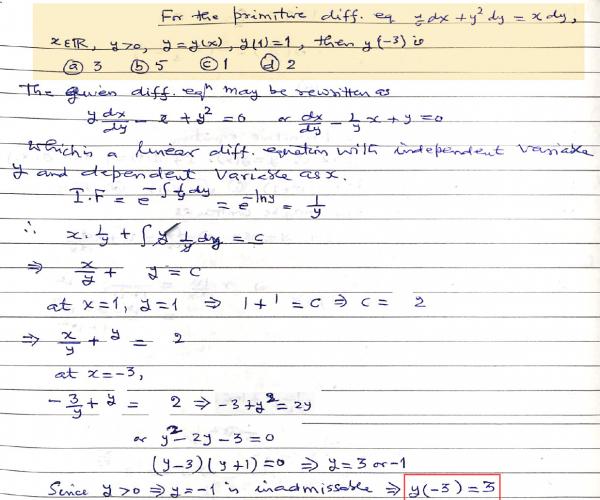 For the primitive diff. eq y dx + y² dy = x dy,
x∈R, y>0, y = y(x), y(1)=1, then y(-3) is
(a) 3 (b) 5 (c) 1 (d) 2
The given diff. eqⁿ may be rewritten as
y dx/dy - x + y² = 0 or dx/dy - 1/y x + y = 0
Which is a linear diff. equation with independent variable
y and dependent variable as x.
I.F = e^-∫1/y dy = e^-lny = 1/y
∴ x. 1/y + ∫ y 1/y dy = c
⇒ x/y + y = c
at x=1, y=1 ⇒ 1+1 = c ⇒ c = 2
⇒ x/y + y = 2
at x=-3,
-3/y + y = 2 ⇒ -3+y² = 2y
or y²-2y-3=0
(y-3)(y+1)=0 ⇒ y=3 or -1
Since y>0 ⇒ y=-1 is inadmissable ⇒ y(-3)=3